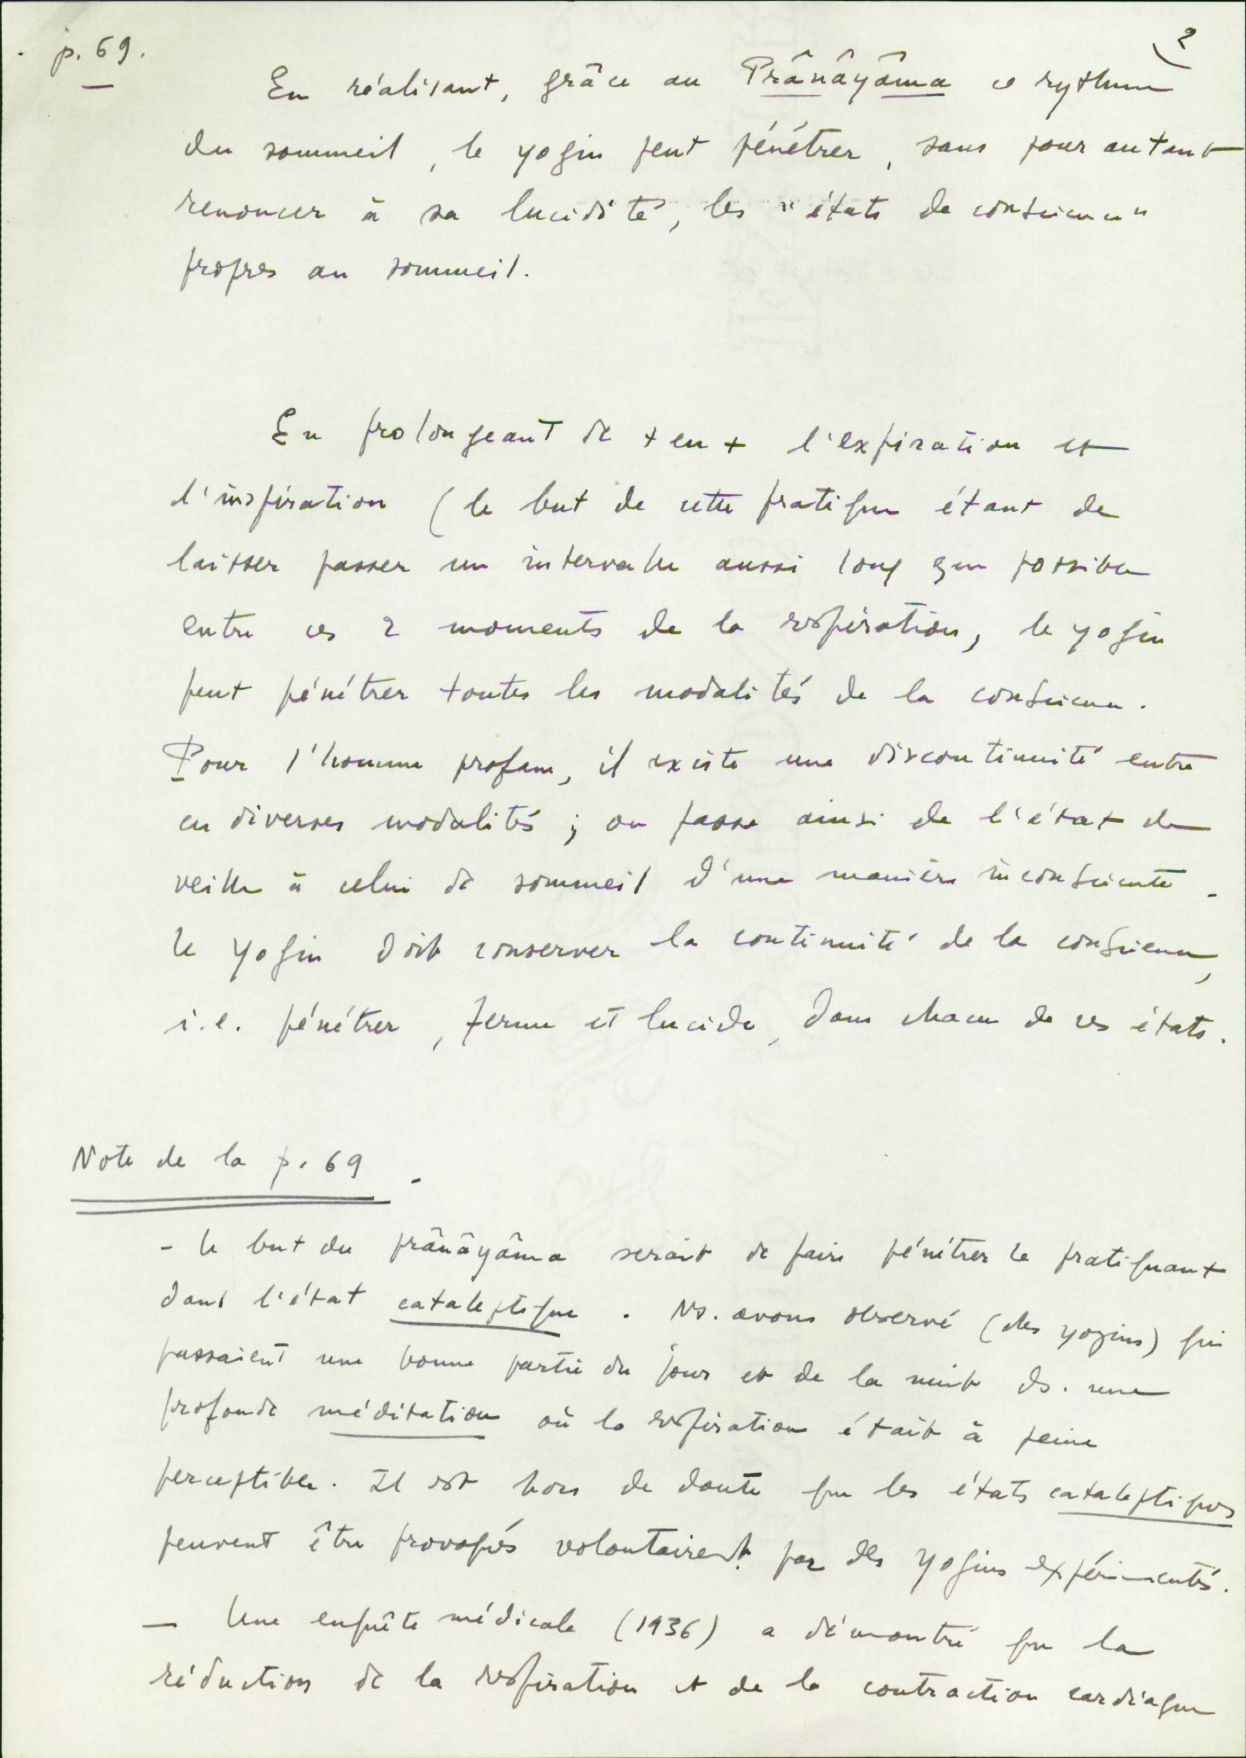 p. 69.
2
En réalisant, grâce au Prânâyâma ce rythme
du sommeil, le yogin peut pénétrer, sans pour autant
renoncer à sa lucidité, les "états de conscience"
propres au sommeil.
En prolongeant de + en + l'expiration et
l'inspiration (le but de cette pratique étant de
laisser passer un intervalle aussi long que possible
entre ces 2 moments de la respiration, le yogin
peut pénétrer toutes les modalités de la conscience.
Pour l'homme profane, il existe une discontinuité entre
ces diverses modalités ; on passe ainsi de l'état de
veille à celui de sommeil d'une manière inconsciente.
Le yogin doit conserver la continuité de la conscience,
i.e. pénétrer, ferme et lucide, dans chacun de ces états.
Note de la p. 69.
- Le but du prânâyâma serait de faire pénétrer le pratiquant
dans l'état cataleptique. Ns. avons observé (des yogins) qui
passaient une bonne partie du jour et de la nuit ds. une
profonde méditation où la respiration était à peine
perceptible. Il est hors de doute que les états cataleptiques
peuvent être provoqués volontairemt. par des yogins expérimentés.
— Une enquête médicale (1936) a démontré que la
réduction de la respiration et de la contraction cardiaque